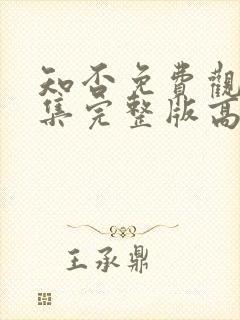 知否免費觀
集完整版高
王承鼎